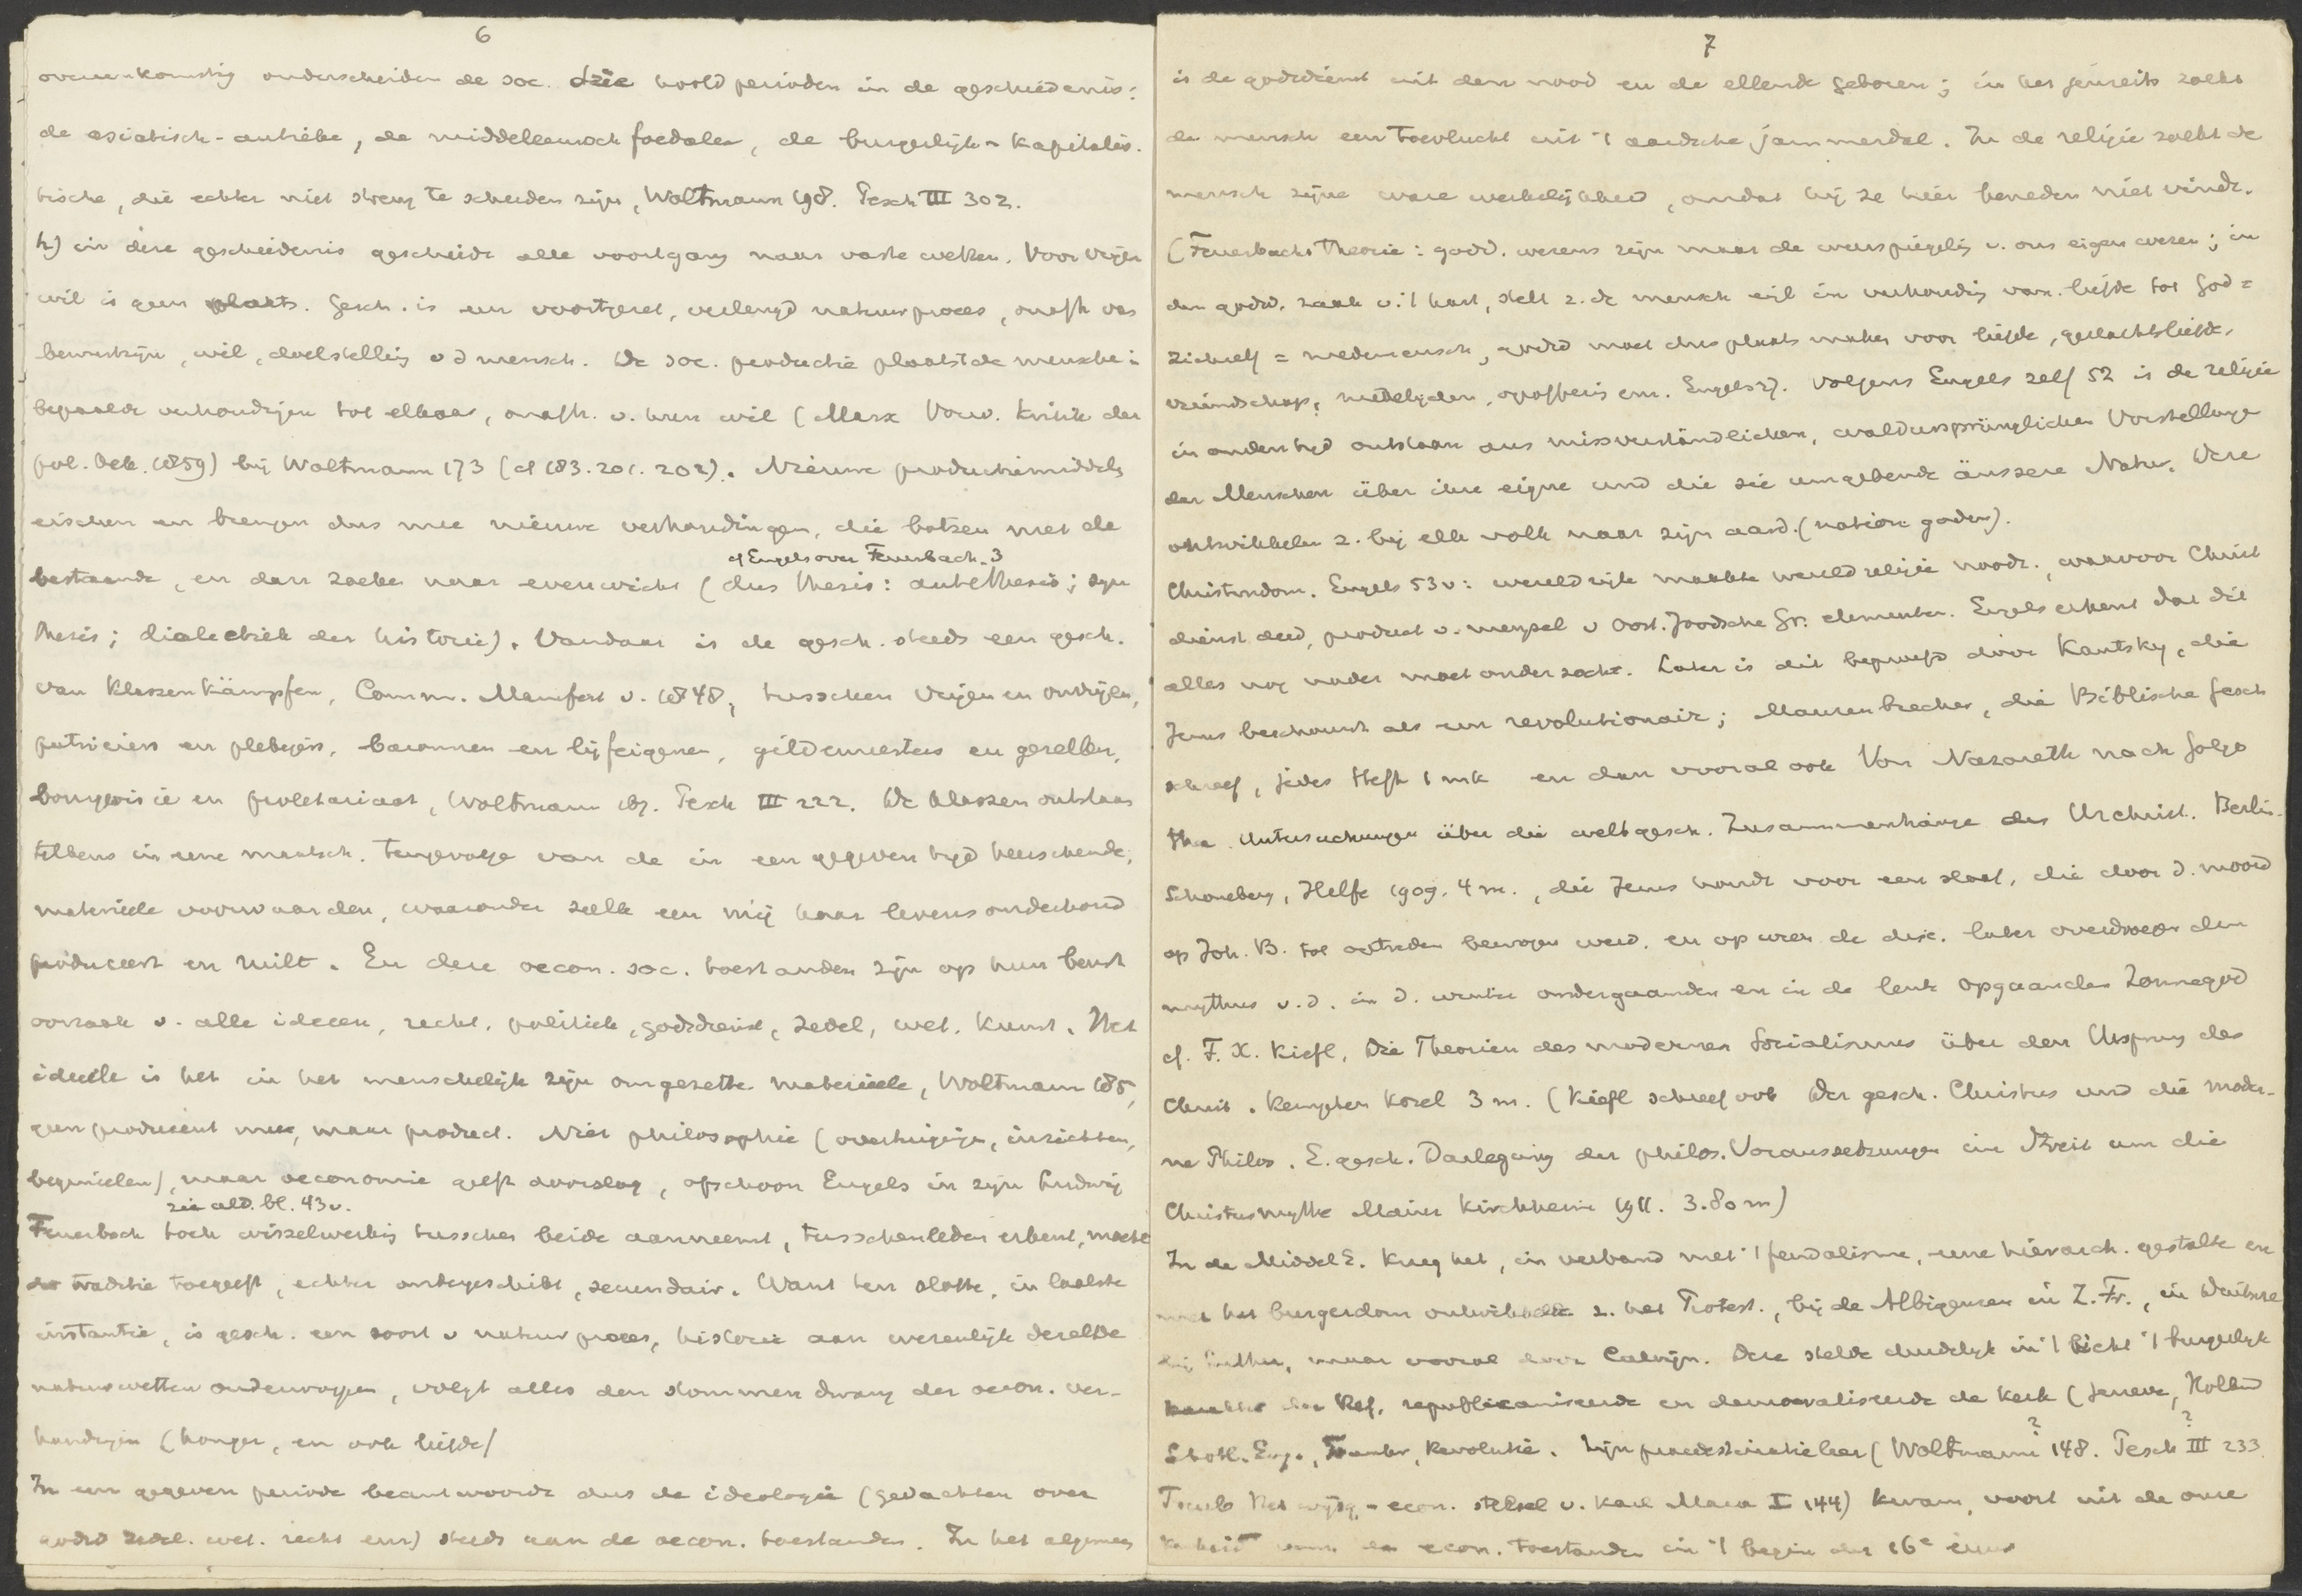 6
overeenkomstig onderscheiden de soc. drie hoofdperioden in de geschiedenis:
de asiatisch-antieke, de middeleeuwsch foedale, de burgerlijk-kapitalis-
tische, die echter niet streng te scheiden zijn, Woltmann 198. Pesch III 302.
h) in deze geschiedenis geschiedt alle voortgang naar vaste wetten. Voor vrijen
wil is geen plaats. Gesch. is een voortgezet, verlengd natuurproces, onafh van
bewustzijn, wil, doelstelling v d mensch. De soc. productie plaatst de menschen i
bepaalde verhoudingen tot elkaar, onafh. v. hun wil (Marx Vorw. Kritik der
pol. Oek. 1859) bij Woltmann 173 (cf 183. 201. 202). Nieuwe productiemiddelen
eischen en brengen dus mee nieuwe verhoudingen, die botsen met de
cf Engels over Feuerbach. 3
bestaande, en dan zoeken naar evenwicht (dus thesis: antithesis; syn
thesis; dialectiek der historie). Vandaar is de gesch. steeds een gesch.
van Klassenkämpfen, Comm. Manifest v. 1848, tusschen vrijen en onvrijen,
patriciers en plebejers, baronnen en lijfeigenen, gildemeesters en gezellen,
bourgeoisie en proletariaat, Woltmann Pesch III 222. De klassen ontstaan
telkens in eene maatsch. tengevolge van de in een gegeven tijd heerschende,
materieele voorwaarden, waaronder zulk een mij haar levensonderhoud
produceert en ruilt. En deze oecon. soc. toestanden zijn op hun beurt
oorzaak v. alle ideeen, recht, politiek, godsdienst, zedel, wet. kunst. Het
ideëele is het in het menschelijk zijn omgezette materieele, Woltmann 185,
geen producent maar product. Niet philosophie (overtuigingen, inzichten,
beginselen), maar oeconomie geeft doorslag, ofschoon Engels in zijn Ludwig
zie ald. bl. 43v.
Feuerbach toch wisselwerking tusschen beide aanneemt, tusschenleden erkent, macht
der traditie toegeeft, echter ondergeschikt, secundair. Want ten slotte, in laatste
instantie, is gesch. een soort v natuurproces, historie aan wezenlijk dezelfde
natuurwetten onderworpen, volgt alles den stommen dwang der oecon. ver-
houdingen (honger, en ook liefde)
In een gegeven periode beantwoordt dus de ideologie (gedachten over
godsd zedel. wet. recht enz) steeds aan de oecon. toestanden. In het algemeen
7
is de godsdienst uit den nood en de ellende geboren; in het jenseits zoekt
de mensch een toevlucht uit 't aardsche jammerdal. In de religie zoekt de
mensch zijne ware werkelijkheid, omdat hij ze hier beneden niet vindt.
(Feuerbachs theorie: godd. wezens zijn maar de weerspiegeling v. ons eigen wezen; in
den godsd. zaak v. 't hart, stelt z. de mensch in verhouding van liefde tot God =
zichzelf = medemensch, godsd moet dus plaats maken voor liefde, geslachtsliefde,
vriendschap, medelijden, opoffering enz. Engels 27. Volgens Engels zelf 52 is de religie
in ouden tijd ontstaan aus missverständlichen, waldursprünglichen Vorstellungen
der Menschen über ihre eigne und die sie umgebende äussere Natur. Deze
ontwikkelen z. bij elk volk naar zijn aard. (nation. goden).
Christendom. Engels 53v: wereldrijk maakte wereldreligie noodz., waarvoor Christ
dienst deed, product v. mengsel v Oost. Joodsche Gr. elementen. Engels erkent dat dit
alles nog nader moet onderzocht. Later is dit beproefd door Kautsky, die
Jezus beschouwt als een revolutionair; Maurenbrecher, die Biblische Gesch
schreef, jedes Heft 1 mk en dan vooral ook Von Nazareth nach Golgo
tha. Untersuchungen über die weltgesch. Zusammenhänge des Urchrist. Berlin-
Schoneberg, Hilfe 1909. 4 m., die Jezus houdt voor een die door d. moord
op Joh. B. tot optreden bewogen werd. en op wien de disc. later overdroegen den
mythus v. d. in d. winter ondergaanden en in de lente opgaanden Zonnegod
cf. F. X. Kiefl, Die Theorien des modernen Socialismus über den Ursprung des
Christ. Kempten Kösel 3 m. (Kiefl schreef ook Der gesch. Christus und die moder-
ne Philos. E. gesch. Darlegung der philos. Voraussetzungen im Streit um die
Christusmythe Mainz Kirchheim 1911. 3.80 m)
In de Middel E. kreeg het, in verband met 't feudalisme, eene hierarch. gestalte en
met het burgerdom ontwikkelde z. het Protest., bij de Albigenzen in Z. Fr., in Duitschl
bij Luther, maar vooral door Calvijn. Deze stelde duidelijk in 't licht 't burgerlijk
karakter der Ref. republicaniseerde en democratiseerde de kerk (Geneve, Holland
Schotl. Eng., Revolutie. Zijn praedestinatieleer (Woltmann? 148. Pesch? III 233
Het wijsg.-econ. stelsel v. Karl Marx I 144) kwam voort uit de onze
kerheid van de econ. toestanden in 't begin der 16e eeuw